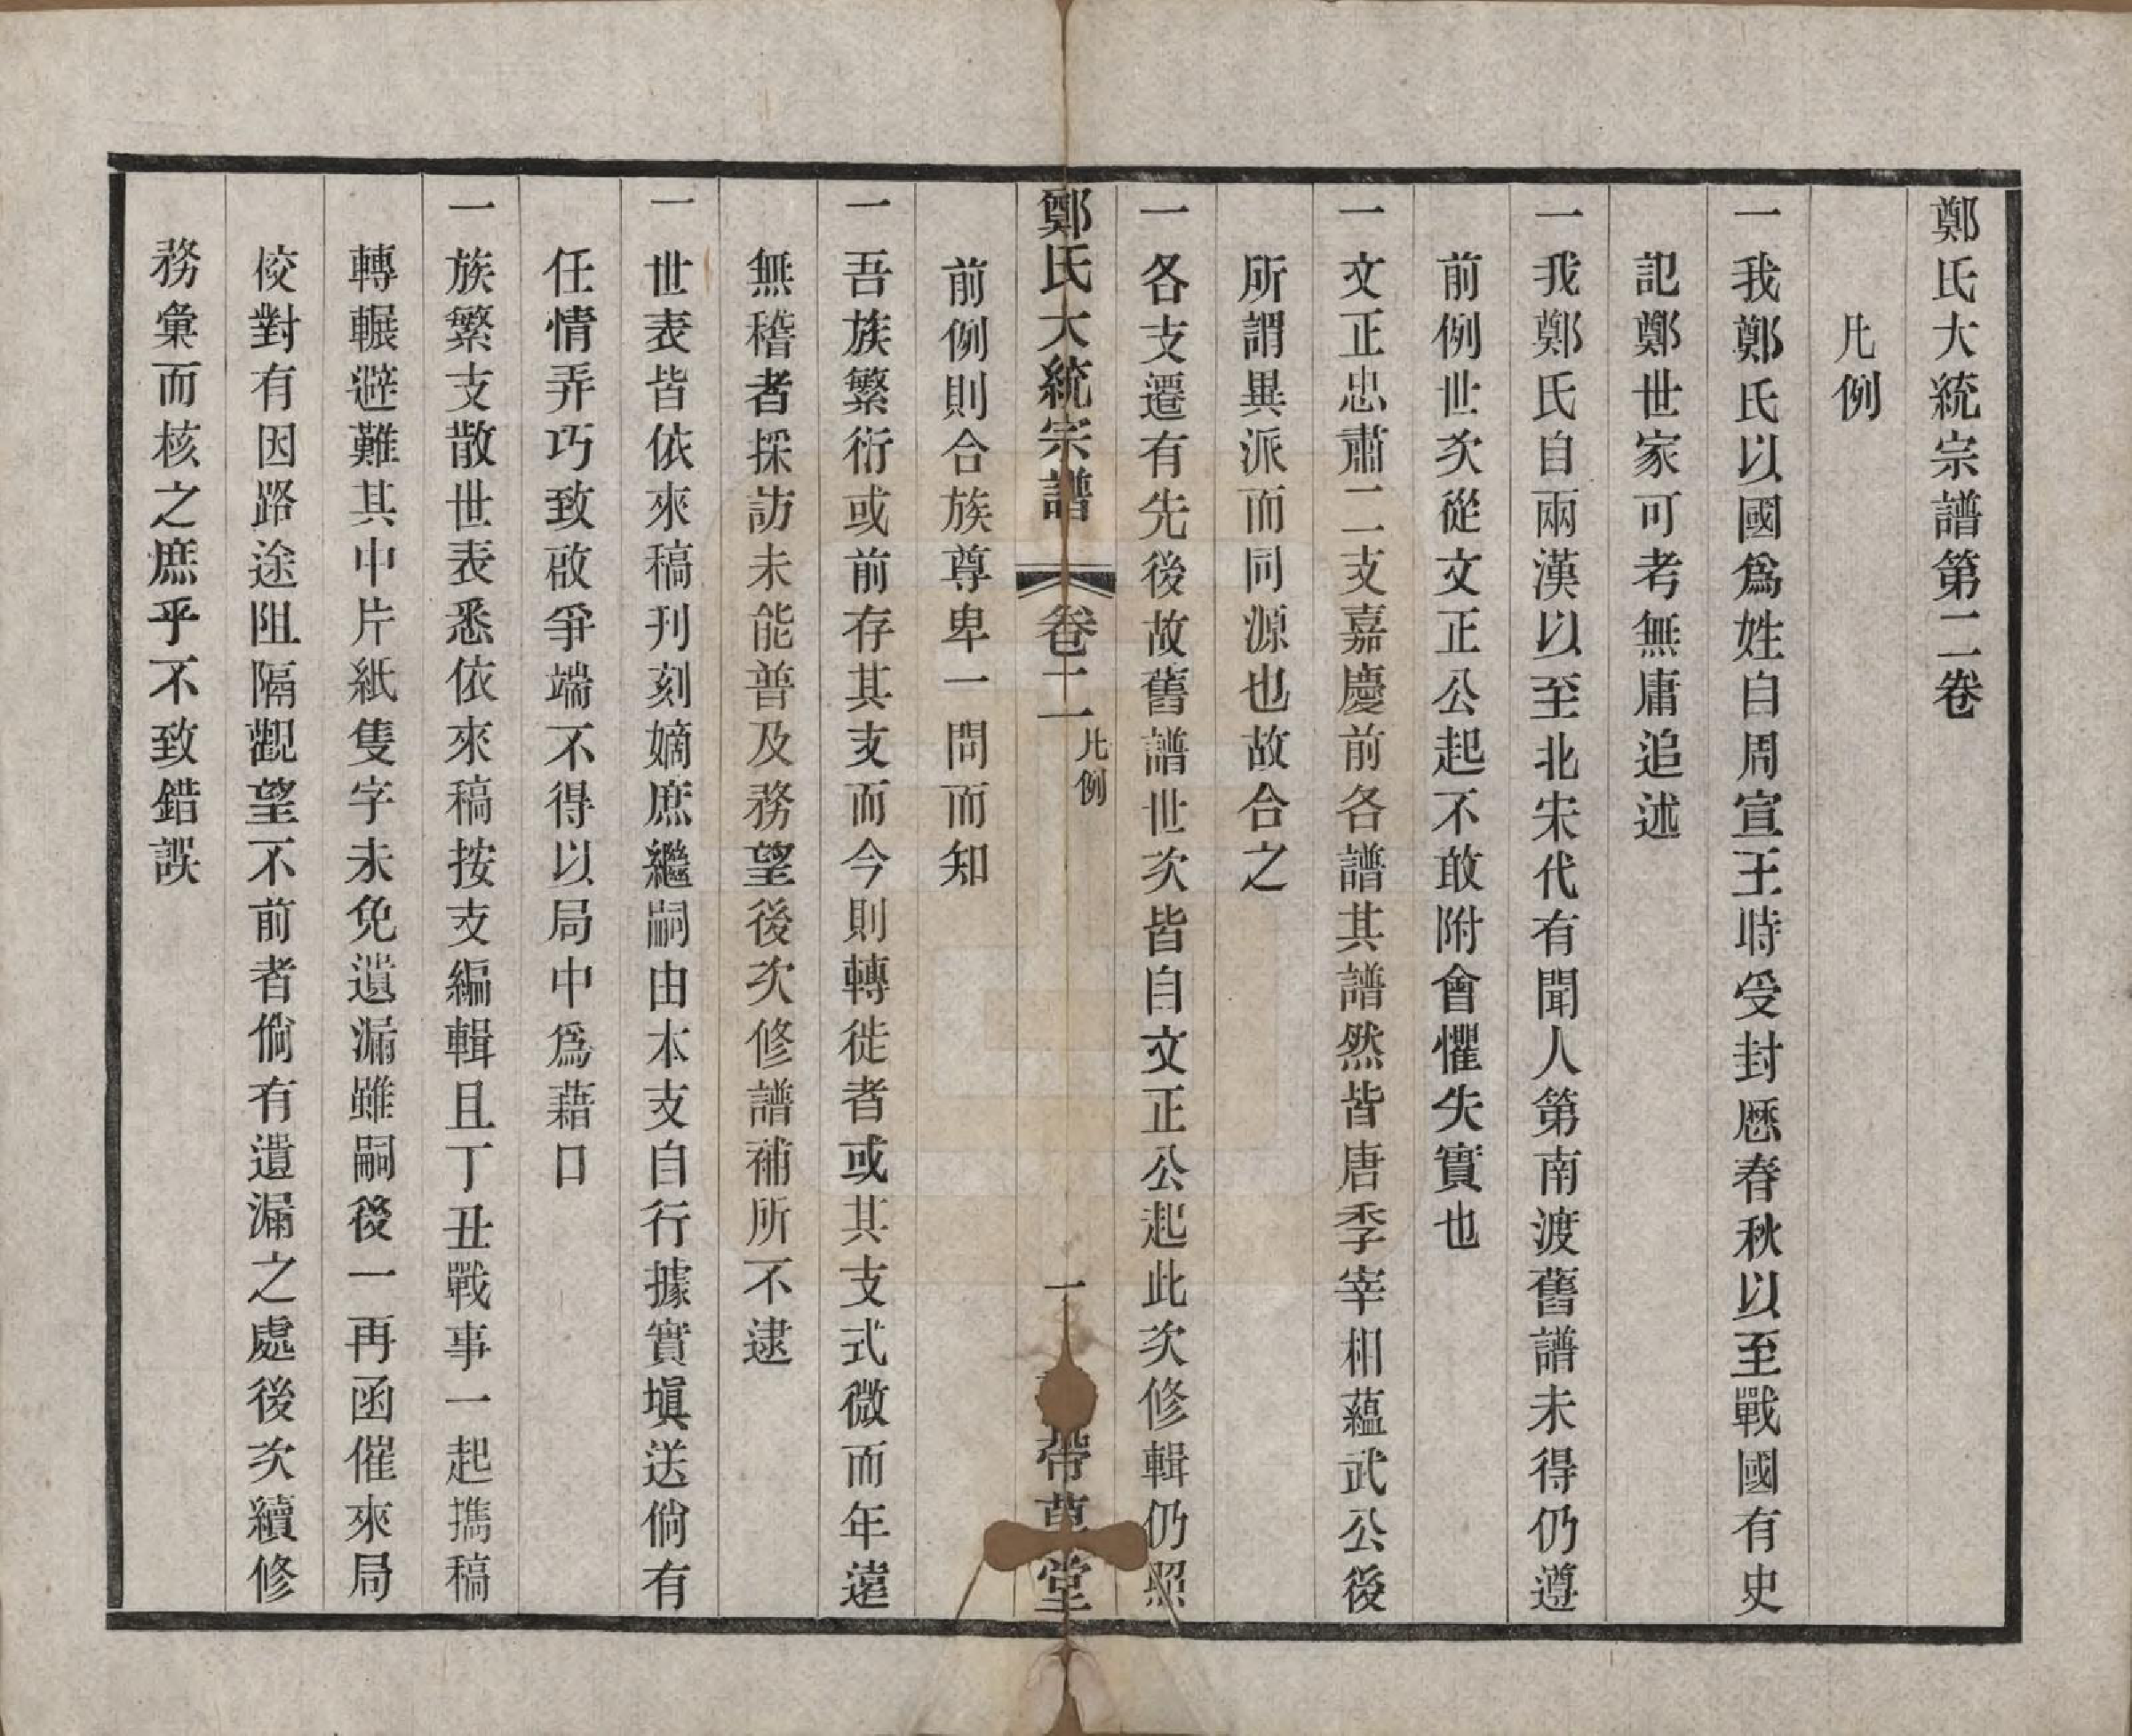 鄭氏大統宗譜第二卷
凡例
一我鄭氏以國爲姓自周宣王時受封歷春秋以至戰國有史
記鄭世家可考無庸追述
一我鄭氏自兩漢以至北宋代有聞人第南渡舊譜未得仍遵
前例世次從文正公起不敢附會懼失實也
一文正忠肅二支嘉慶前各譜其譜然皆唐季宰相蘊武公後
所謂異派而同源也故合之
一各支遷有先後故舊譜世次皆自文正公起此次修輯仍照
鄭氏大統宗譜 卷二 凡例 一 帶草堂
前例則合族尊卑一問而知
一吾族繁衍或前存其支而今則轉徙者或其支式微而年遠
無稽者採訪未能普及務望後次修譜補所不逮
一世表皆依來稿刊刻嫡庶繼嗣由本支自行據實塡送倘有
任情弄巧致啟爭端不得以局中爲藉口
一族繁支散世表悉依來稿按支編輯且丁丑戰事一起攜稿
轉輾避難其中片紙隻字未免遺漏雖嗣後一再函催來局
佼對有因路途阻隔觀望不前者倘有遺漏之處後次續修
務彙而核之庶乎不致錯誤